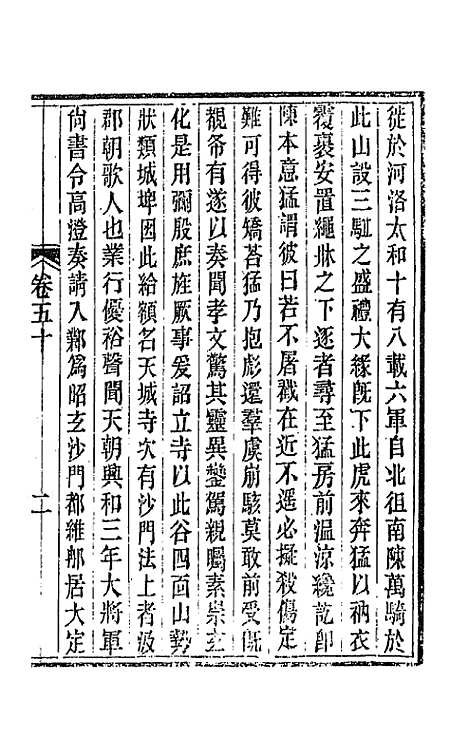 徙於河洛太和十有八載六軍自北徂南陳萬騎於
此山設三駈之盛禮大緣旣下此虎來奔猛以衲衣
覆裹安置繩牀之下逐者尋至猛房前温涼纔訖卽
陳本意猛謂彼曰若不屠戮在近不遥必擬殺傷定
難可得彼矯荅猛乃抱彪還羣虞崩駭莫敢前受旣
觀希有遂以奏聞孝文驚其靈異鑾駕親矚素崇玄
化是用彌殷庶旌厥事爰詔立寺以此谷四面山勢
狀類城埤因此給額名天城寺次有沙門法上者汲
郡朝歌人也業行優裕聲聞天朝興和三年大將軍
尚書令高澄奏請入鄴爲昭玄沙門都維那居大定
卷五十
二